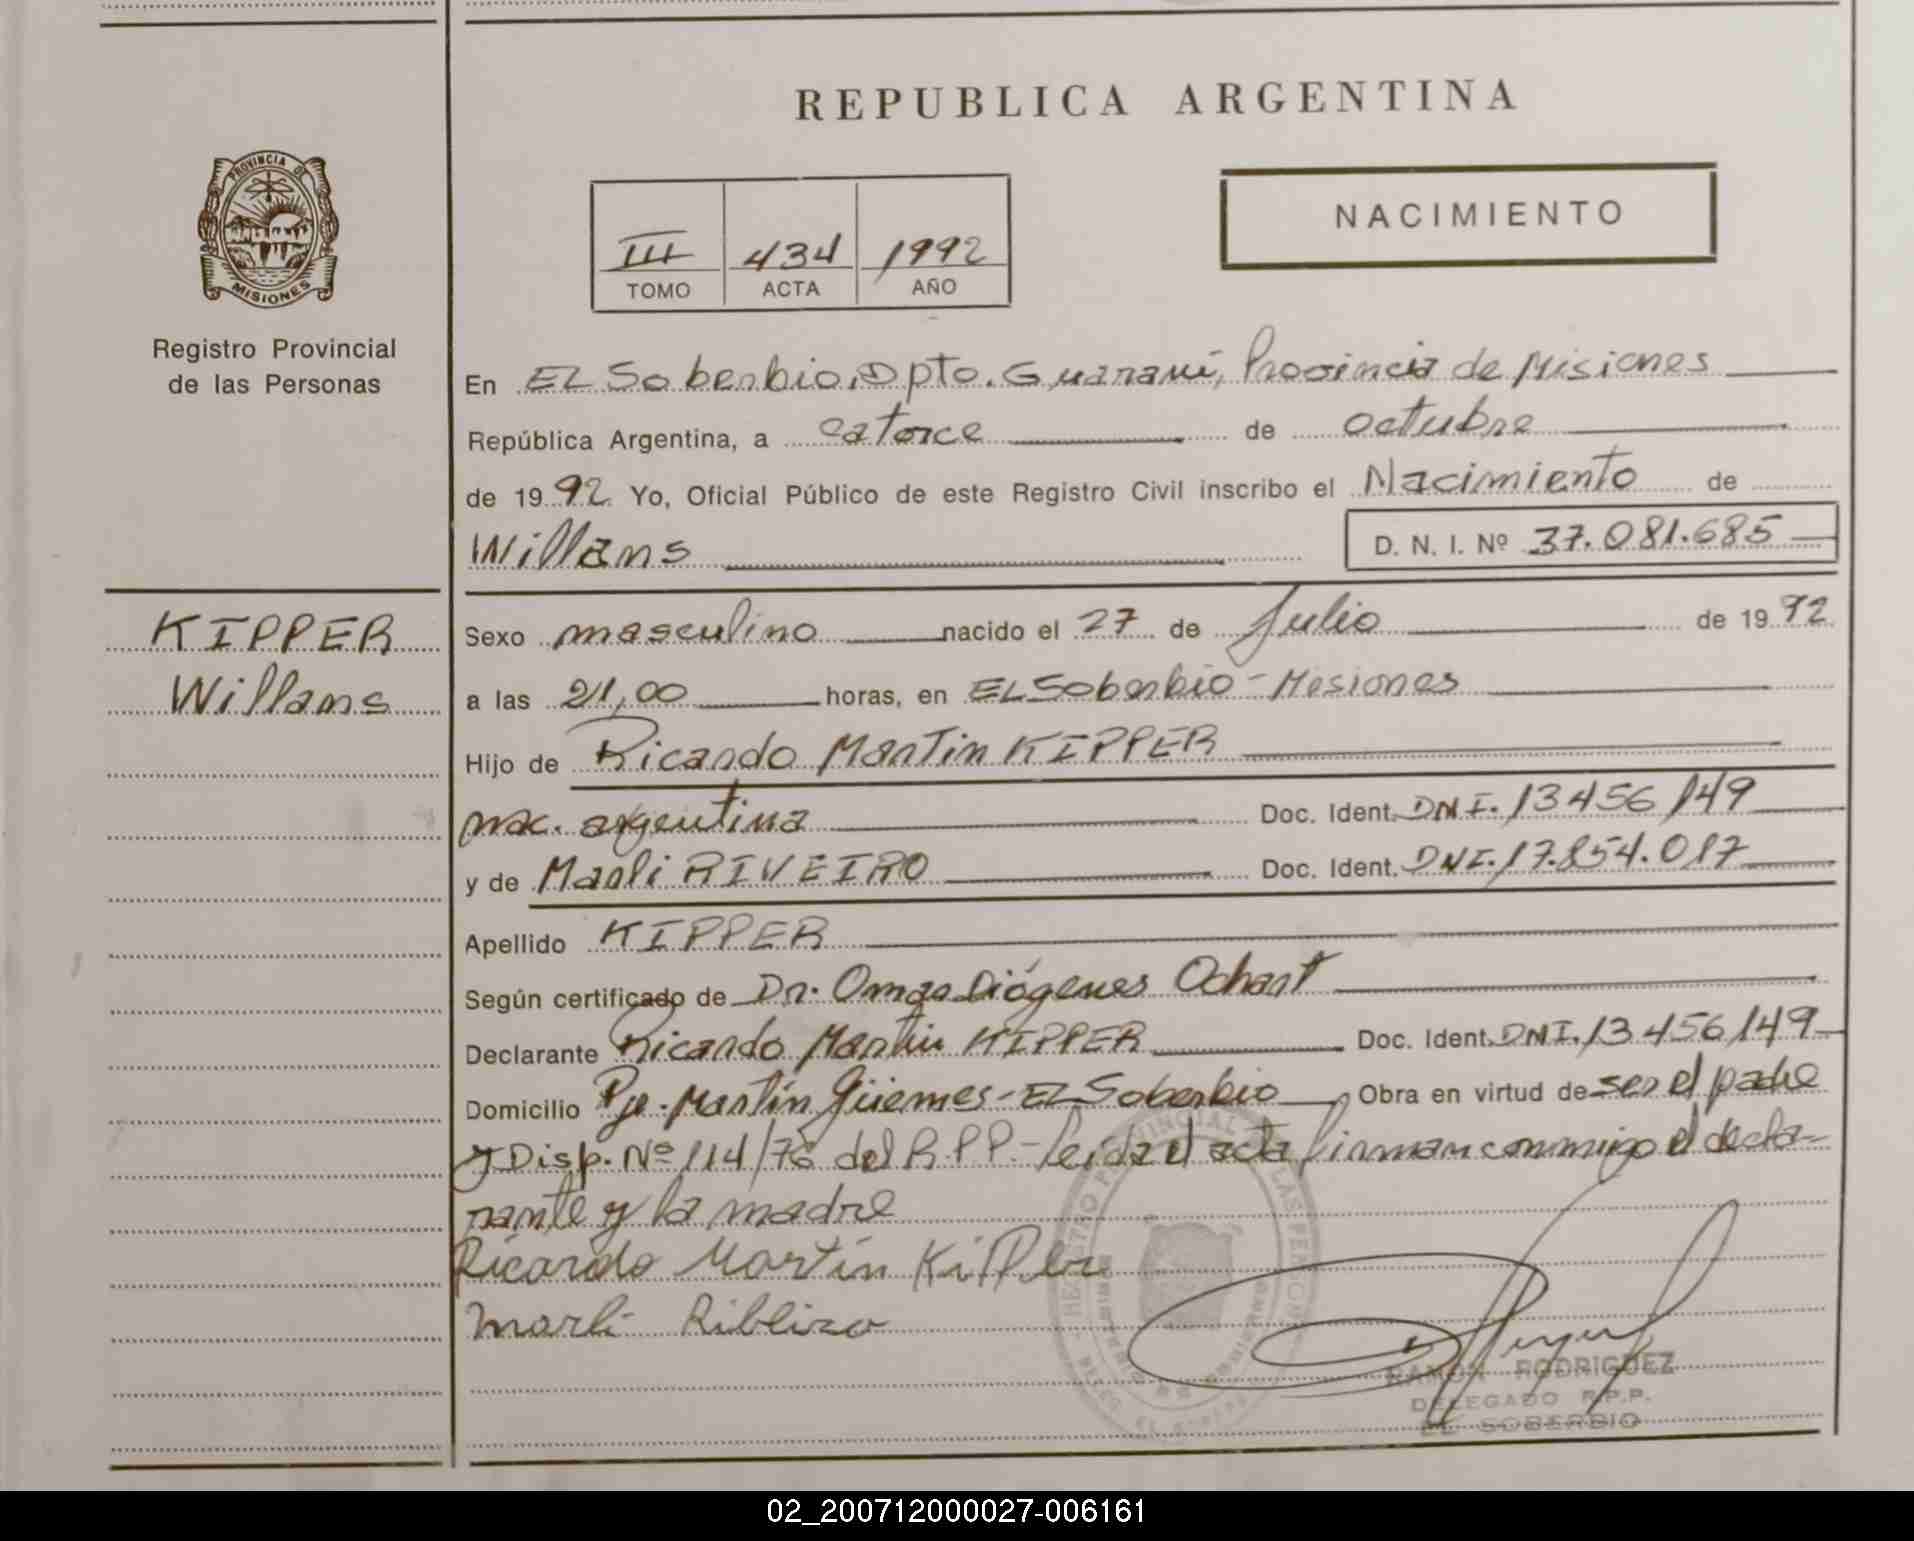 REPUBLICA ARGENTINA
PROVINCIA DE
MISIONES
Registro Provincial
de las Personas
III 434 1992
TOMO ACTA AÑO
NACIMIENTO
En EL Soberbio, Dpto. Guaraní, Provincia de Misiones
República Argentina, a catorce de octubre
de 1992 Yo, Oficial Público de este Registro Civil inscribo el Nacimiento de
Willans D. N. I. Nº 37.081.685
KIPPER
Willans
Sexo masculino nacido el 27 de Julio de 1992
a las 21,00 horas, en EL Soberbio - Misiones
Hijo de Ricardo Martin KIPPER
nac. argentina Doc. Ident. DNI. 13456149
y de Marli RIVEIRO Doc. Ident. DNI. 17.854.017
Apellido KIPPER
Según certificado de Dr. Omar Diógenes Ochart
Declarante Ricardo Martin KIPPER Doc. Ident. DNI. 13456149
Domicilio Pje. Martín Güemes - EL Soberbio Obra en virtud de ser el padre
y Disp. Nº 114/76 del R.P.P. - leida el acta firman conmigo el decla-
rante y la madre
Ricardo Martín Kipper
Marli
RAMON RODRIGUEZ
DELEGADO R.P.P.
EL SOBERBIO
02_200712000027-006161